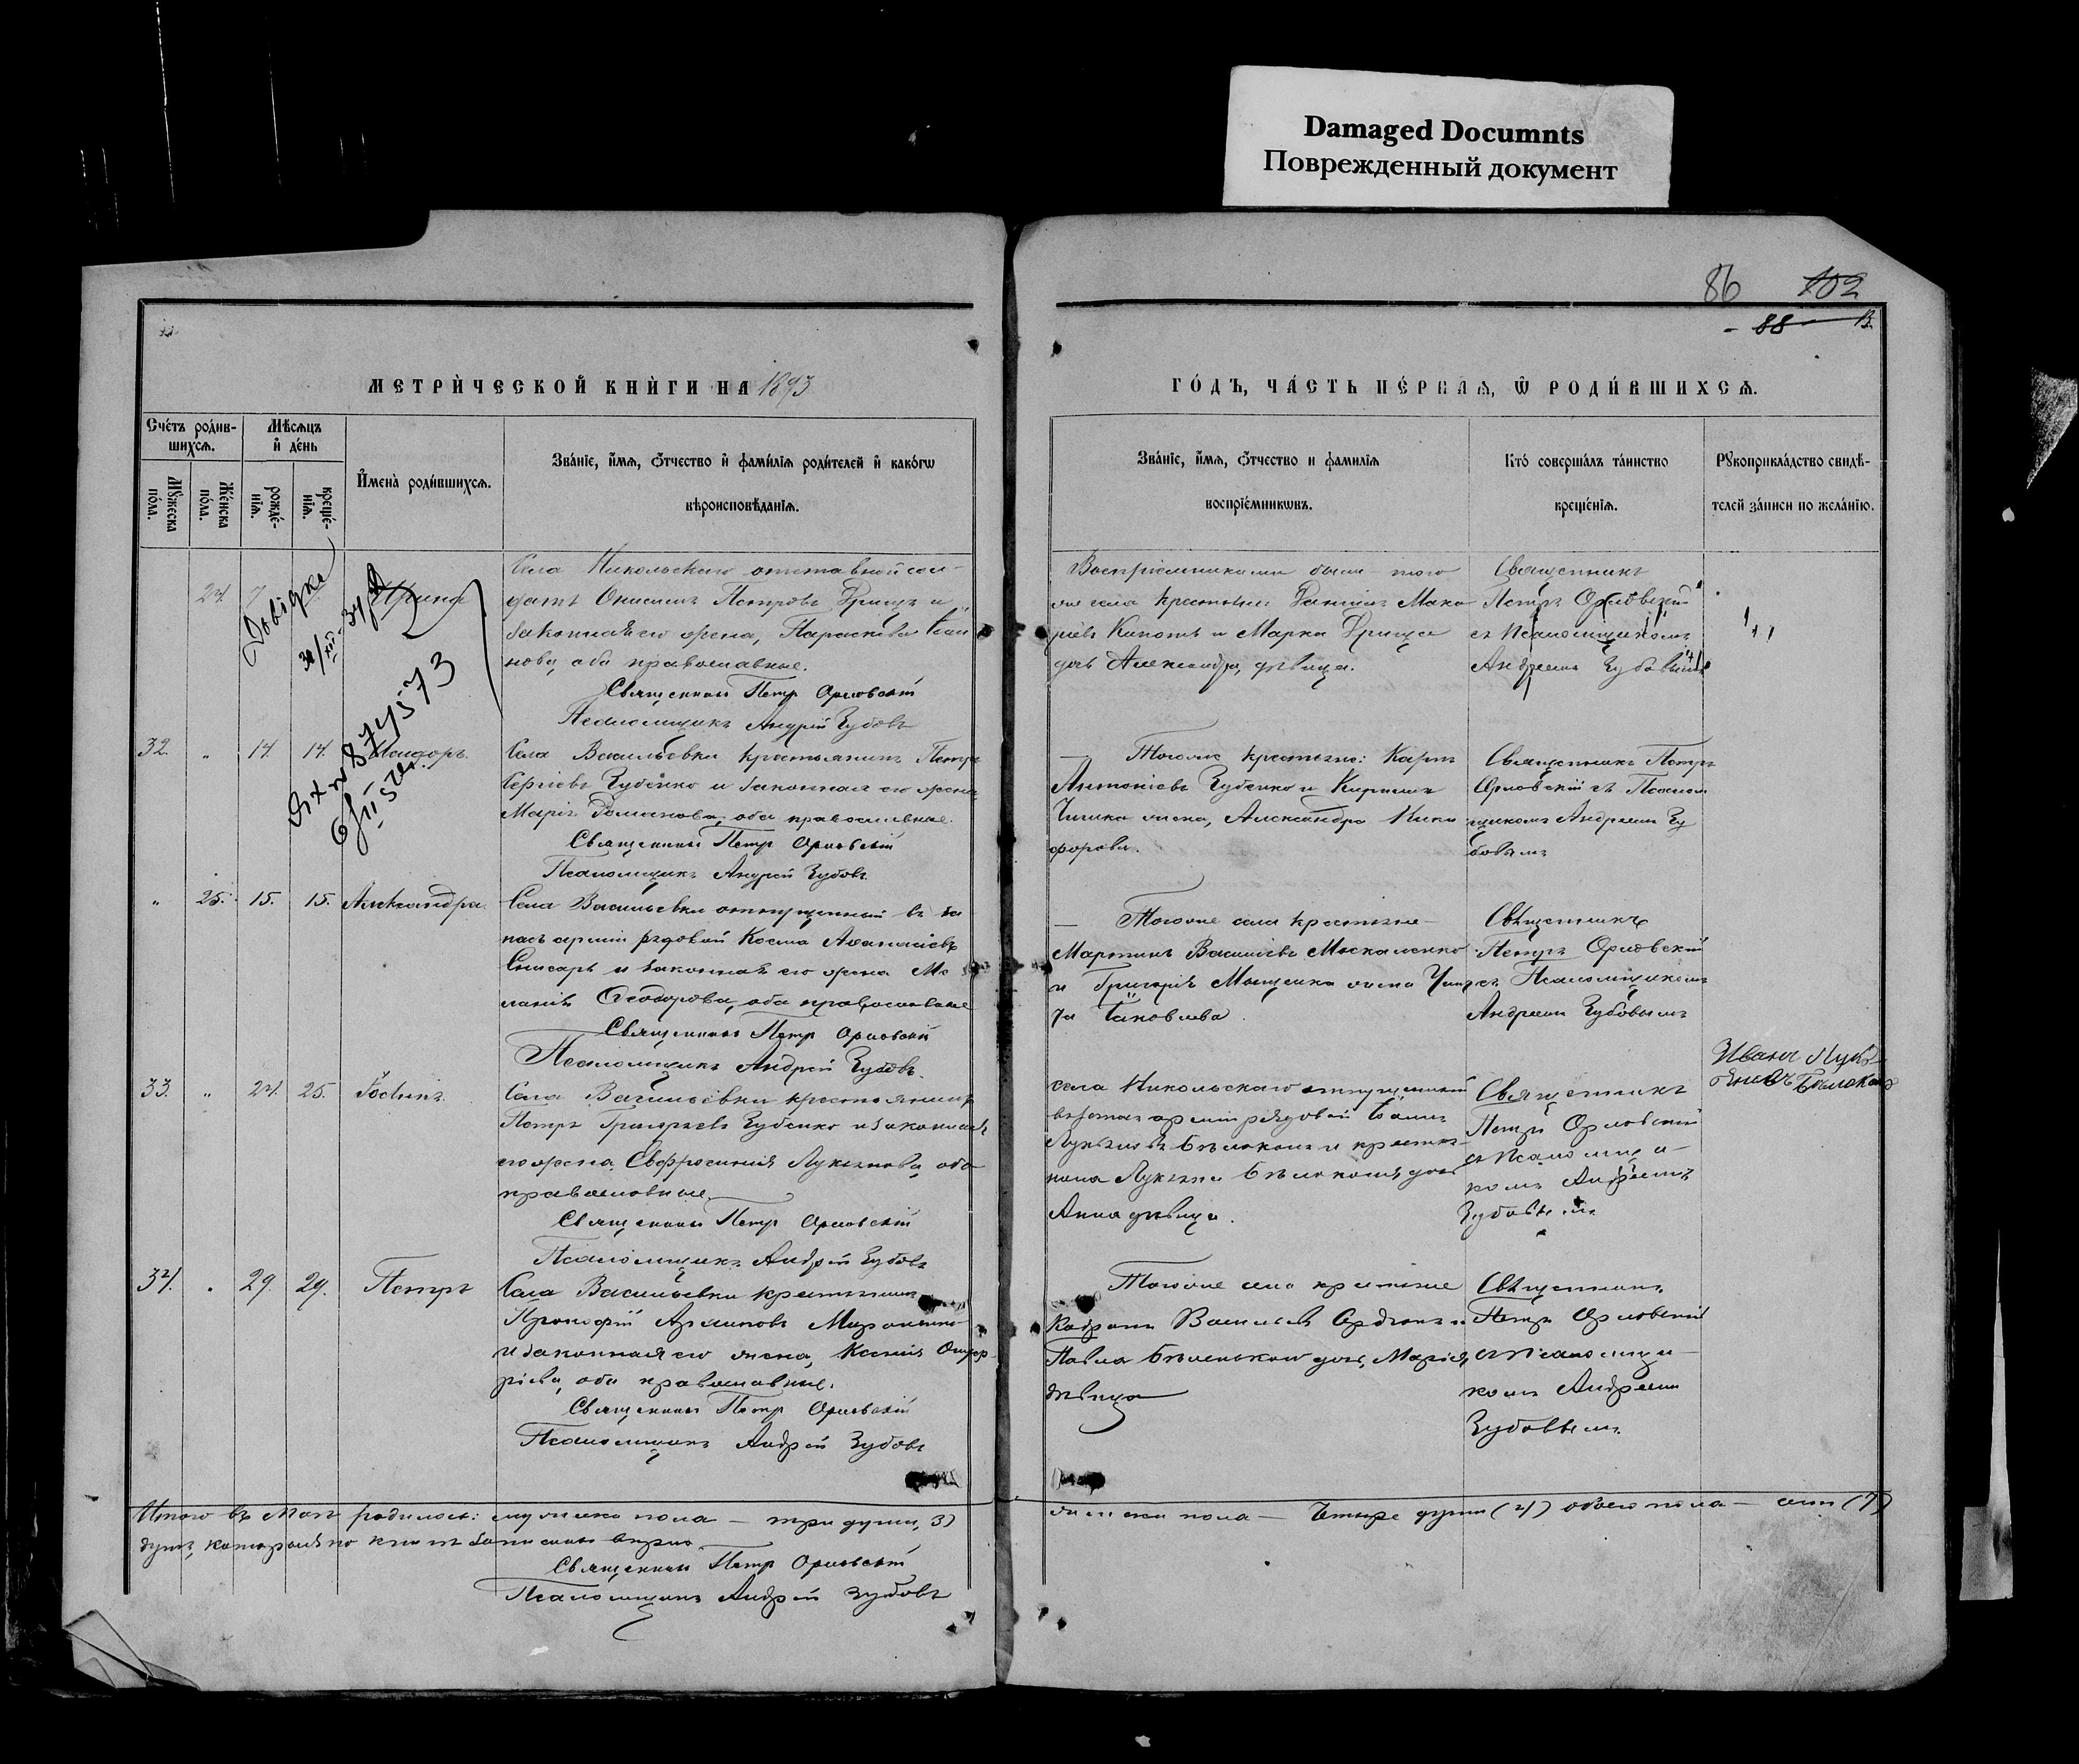 Damaged Documnts
Поврежденный документ
86 102
- 88 -
МЕТРИ́ЧЕСКОЙ КНИ́ГИ НА 1893
ГО́ДЪ, ЧА́СТЬ ПЕ́РВАЯ, Ѡ РОДИ́ВШИХСЯ.
Сче́тъ роди́в-
шихся.
Мѣсяцъ
и де́нь
Мꙋжеска по́ла.
Же́нска по́ла.
рожде́-
нїя.
креще́-
нїя.
И҆мена̀ роди́вшихся.
Зва́нїе, и҆́мя, ѻ҆́тчество и҆ фами́лїя роди́телей и҆ како́гѡ
вѣроисповѣ́данїя.
Зва́нїе, и҆́мя, ѻ҆́тчество и фами́лїя
воспрїе́мникѡвъ.
Кто̀ соверша́лъ та́инство
креще́нїя.
Рꙋкоприкла́дство свидѣ́-
телей за́писи по жела́нїю.
24. 7 Ирина
Довідка
30/XII-34 р
Вх № 874573
Села Никольскаго отставной сол-
датъ Онисимъ Петровъ Дрищъ и
законная его жена, Параскева
нова, оба православные.
Священникъ Петръ Орловскій
Псаломщикъ Андрей Зубовъ
Воспріемниками были того
же села крестьяне: Мака
ріевъ и Марка Дрища
дочь Александра, дѣвица.
Священникъ
Петръ Орловскій
съ Псаломщикомъ
Андреемъ Зубовымъ
32. " 14. 14. Исидоръ.
Села Васильевки крестьянинъ Петръ
Сергіевъ Зубенко и законная его жена
Марія Романова, оба православные.
Священникъ Петръ Орловскій
Псаломщикъ Андрей Зубовъ
Того же крестьяне: Карпъ
Антоніевъ Зубенко и Кирилла
жена, Александра Ники
форова.
Священникъ Петръ
Орловскій съ Псалом
щикомъ Андреемъ Зу
бовымъ
" 25. 15. 15. Александра
Села Васильевки отпущенный въ за
пасъ арміи рядовой Косма Аѳанасіевъ
Слисарь и законная его жена Ме
ланія Ѳеодорова, оба православные
Священникъ Петръ Орловскій
Псаломщикъ Андрей Зубовъ.
Того же села крестьяне
Мартинъ Васильевъ Москаленко
и Григорія жена
Яковлева.
Священникъ
Петръ Орловскій
съ Псаломщикомъ
Андреемъ Зубовымъ
33. " 24. 25.
Села Васильевки крестьянинъ
Петръ Григорьевъ Зубенко и законная
его жена Евфросинія Лукьянова, оба
православные.
Священникъ Петръ Орловскій
Псаломщикъ Андрей Зубовъ
села Никольскаго отпущенный
въ запас арміи рядовой
Бѣлоконь и крестья
нина Лукьяна Бѣлоконя дочь
Анна дѣвица.
Священникъ
Петръ Орловскій
съ Псаломщи-
комъ Андреемъ
Зубовымъ
Иванъ
34. " 29. 29. Петръ
Села Васильевки крестьянинъ
Прокофій Мироненко
и законная его жена, Ксенія Онуф-
ріева, оба православные.
Священникъ Петръ Орловскій
Псаломщикъ Андрей Зубовъ
Того же села крестьяне
Васильевъ и
Павла Бѣленькаго дочь, Марія,
дѣвица
Священникъ
Петръ Орловскій
съ Псаломщи-
комъ Андреемъ
Зубовымъ
Итого въ Маѣ родилось: мужеска пола — три души, 3)
женска пола — Четыре души (4) обоего пола — семь (7)
душъ, которые по книгѣ записаны вѣрно.
Священникъ Петръ Орловскій
Псаломщикъ Андрей Зубовъ